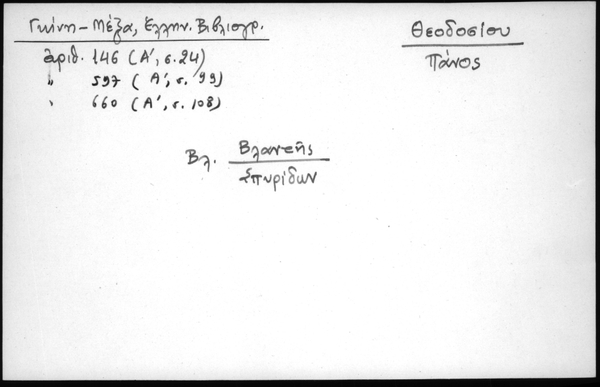 Γκίνη - Μέξα, Ἑλλην. Βιβλιογρ.
ἀριθ. 146 (Α', σ. 24)
" 597 (Α', σ. 99)
" 660 (Α', σ. 108)
Θεοδοσίου
Πάνος
Βλ. Βλαντῆς
Σπυρίδων